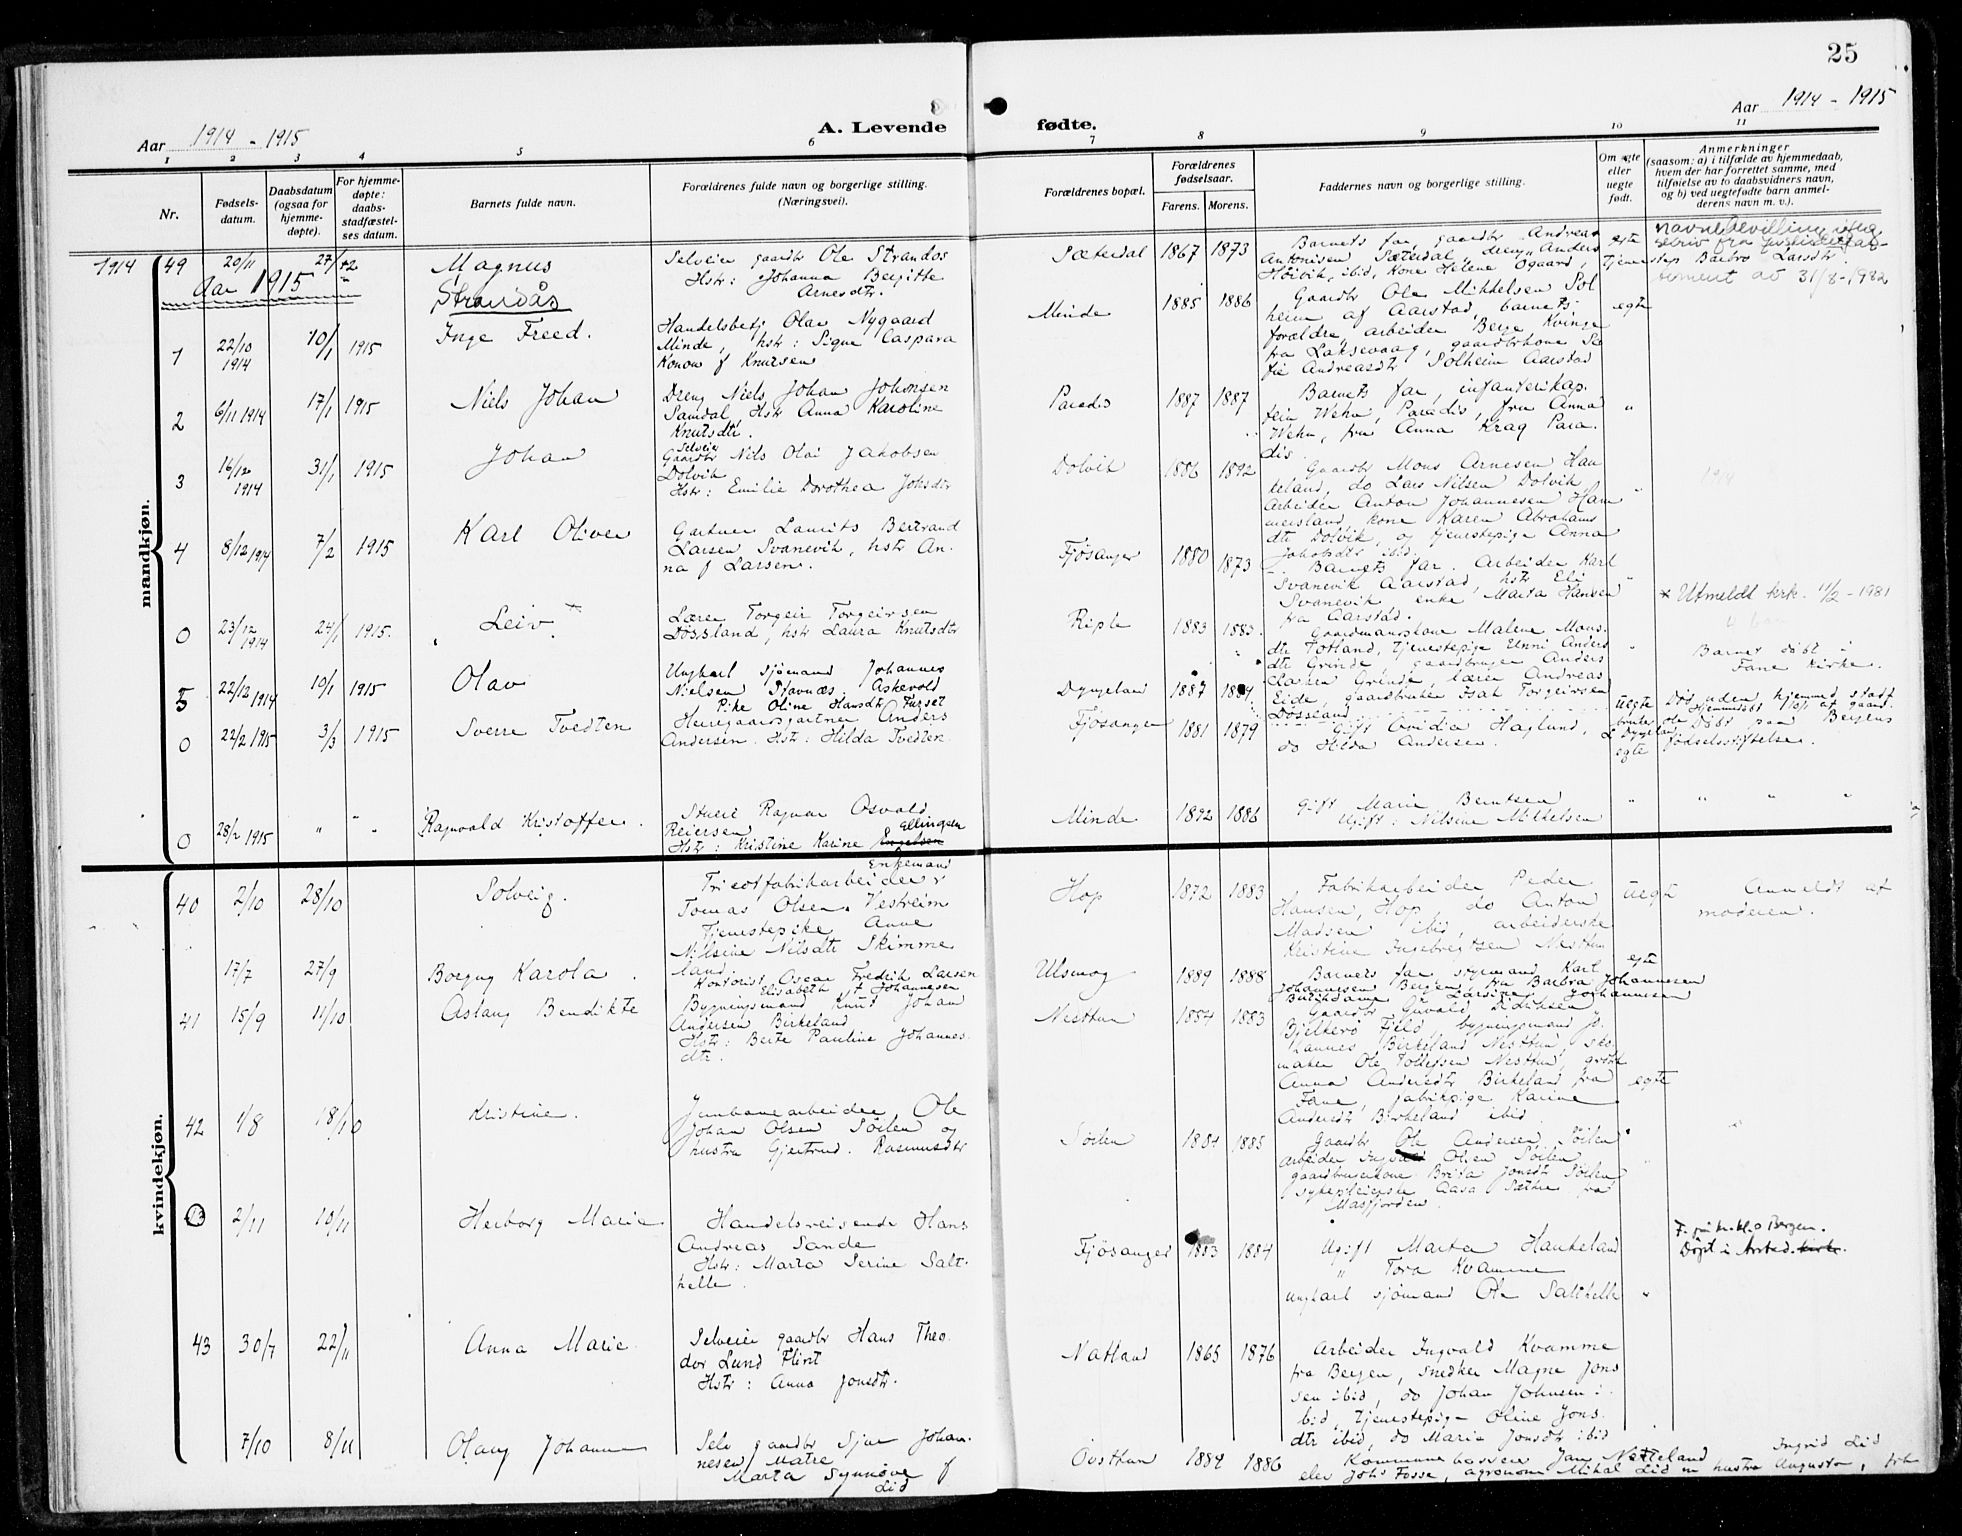 25
Aar 1914 - 1915
A. Levende
fødte.
Aar 1914 - 1915
1 2 3 4 5 6 7 8 9 10 11
Nr.
Fødsels-
datum.
Daabsdatum
(ogsaa for
hjemme-
døpte).
For hjemme-
døpte:
daabs-
stadfæstel-
ses datum.
Barnets fulde navn.
Forældrenes fulde navn og borgerlige stilling.
(Næringsvei).
Forældrenes bopæl.
Forældrenes
fødselsaar.
Farens. Morens.
Faddernes navn og borgerlige stilling.
Om egte
eller
uegte
født.
Anmerkninger
(saasom: a) i tilfælde av hjemmedaab,
hvem der har forrettet samme, med
tilføielse av to daabsvidners navn,
og b) ved uegtefødte barn anmel-
derens navn m. v.).
mandkjøn.
1914 49 20/11 27/12
Magnus
Strandås
Selveier gaardbr Ole Strandos
Hstr: Johanna Bergitte
Arnesdtr.
Sæterdal 1867 1873
Barnets far, gaardbr Andreas
Antonisen Sæterdal, dreng Anders
Høivik, ibid, Kone Helene Øgaard,
tjenerstep Barbro Larsdtr.
egte
Navnebevilling iflg
skriv fra Justisdepar-
tement av 31/8-1982
Aar 1915
1 22/10 1914 10/1 1915
Inge Freed.
Handelsbetj Olav Nygaard
Minde, hstr: Signe Caspara
Konow f Knutsen
Minde 1885 1886
Gaardbr Ole Mikkelsen Sol
heim af Aarstad, barnets
forældre, arbeider Berge Kvinge
fra Laksevaag, gaardbrkone So
fie Andreasdtr Solheim Aarstad
egte
2 6/11 1914 17/1 1915
Niels Johan
Dreng Niels Johan Johnsen
Sandal, Hstr Anna Karoline
Knutsdtr.
Paradis 1887 1887
Barnets far, infanterikap.
tein Wehn, Paradis, fru Anna
Wehn, frk Anna Krag Para
dis.
"
3 16/12 1914 31/1 1915
Johan
Selveier
Gaardbr Nils Olai Jakobsen
Dolvik
Hstr: Emilie Dorothea Johsdtr
Dolvik 1886 1892
Gaardbr Mons Arnesen Hau
keland, do Lars Nilsen Dolvik,
Arbeider Anton Johannesen Ham
mersland, kone Karen Abrahams
dtr Dolvik, og tjenestepige Anna
Jakobsdtr ibid.
"
1914
4 8/12 1914 7/2 1915
Karl Oliver
Gartner Laurits Bertrand
Larsen Svanevik, hstr An-
na f Larsen.
Fjøsanger 1880 1873
Barnets far. Arbeider Karl
Svanevik Aarstad, hstr Eli
Svanevik, enke Marta Hansen
fra Aarstad.
"
0 23/12 1914 24/1 1915.
Leiv *
Lærer Torgeir Torgeirsen
Døssland, hstr Laura Knutsdtr
Riple 1883 1883
Gaardmandskone Malene Mons-
dtr Totland, Tjenestepige Unni Anders
dtr Grinde, gaardbruger Anders
Larsen Grinde, lærer Andreas
Eide, gaardbruker Isak Torgeirsen
Døssland
"
* Utmeldt krk. 11/2 - 1981
Barnet døbt i
Fane kirke.
5 22/12 1914 10/1 1915
Olav
Ungkarl sjømand Johannes
Nielsen Stavnæs, Askevold
Pike Oline Hansdtr Furset
Dyngeland 1887 1884
Uegte
Død uden hjemmed. stadf
Hjemmedøbt 10/1 af gaard-
bruker
L Dyngeland
0 22/2 1915 3/3 1915
Sverre Tvedten
Herregaardsgartner Anders
Andersen. Hstr: Hilda Tvedten
Fjøsanger 1881 1879
Gift Ovidia Haglund,
do Hilda Andersen.
egte
Døbt paa Bergens
Fødselsstiftelse.
0 28/2 1915 " " "
Ragnvald Kristoffer.
Stuert Ragnar Osvald
Reiersen
Ellingsen
Hstr: Kristine Karine
Minde 1892 1886
Gift Marie Berntsen
Ugift: Nilsine Mikkelsen
" " " "
kvindekjøn.
40 2/10 28/10
Solveig.
Enkemand
Tricotfabrikarbeider
Tomas Olsen Vestreim
Tjenestepike Anne
Nilsine Nilsdtr Skimme
land
Hop 1872 1883
Fabrikarbeider Peder
Hansen, Hop, do Anton
Madsen ibid, arbeiderske
Kristine Ingebregtsen Nesttun
uegte
Anmeldt af
moderen.
17/7 27/9
Borgny Karola.
Kontorist Oscar Fredrik Larsen
Elisabeth f Johannesen
Ulsmog 1889 1888
Barnets far, styrmand Karl
Johannesen Bergen, fru Barbra Johannesen
Butikdame Gu Larsine Johannesen
egte
41 15/9 11/10
Aslaug Bendikte
Bygningsmand Knut Johan
Andersen Birkeland
Hstr: Berte Pauline Johannes-
dtr.
Nesttun 1884 1883
Gaardbr Guvald Didriksen
Bjelkerø Fjeld, bygningsmand Jo-
hannes Birkeland Nesttun, sko-
maker Ole Tollefsen Nesttun, gvøkk
Anna Andersdtr Birkeland fra
Fane, fabrikpige Karine
Andersdtr, Birkeland ibid
egte
42 1/8 18/10
Kristine.
Jernbanearbeider Ole
Johan Olsen Søilen og
hustru Gjertrud. Rasmusdtr
Søilen 1884 1885
Gaardbr Ole Andersen Søilen
arbeider Ingvald Olsen Søilen,
gaardbrukerkone Brita Jonsdtr Søilen
sykepleierske Aasa Sæthre fra
Masfjorden.
"
43 2/11 10/11
Herborg Marie
Handelsreisende Hans
Andreas Sande
Hstr: Marta Serine Salt-
helle.
Fjøsanger 1883 1884
Ugift Marta Haukeland
" Tora Kvamme
ungkarl sjømand Ole Salthelle
"
F. på kv.kl.o Bergen.
Døpt i Årstad kirke.
43 30/7 22/11
Anna Marie
Selveier gaardbr Hans Theo-
dor Lund Flint
Hstr: Anna Jonsdtr.
Natland 1865 1876
Arbeider Ingvald Kvamme
fra Bergen, snedker Magne Jons
sen ibid, do Johan Johnsen i-
bid, Tjenestepige Oline Jons
dtr ibid, do Marie Jonsdtr ibid
7/10 8/11
Olaug Johanne
Selv gaardbr Sjur Johan-
nesen Matre
Marta Synnøve f
Lid
Øvsttun 1884 1886
Kommunekasserer Jan Netteland
elev Johs Fosse, agronom Mikal Lid m hustru Augusta, frk
Ingrid Lid